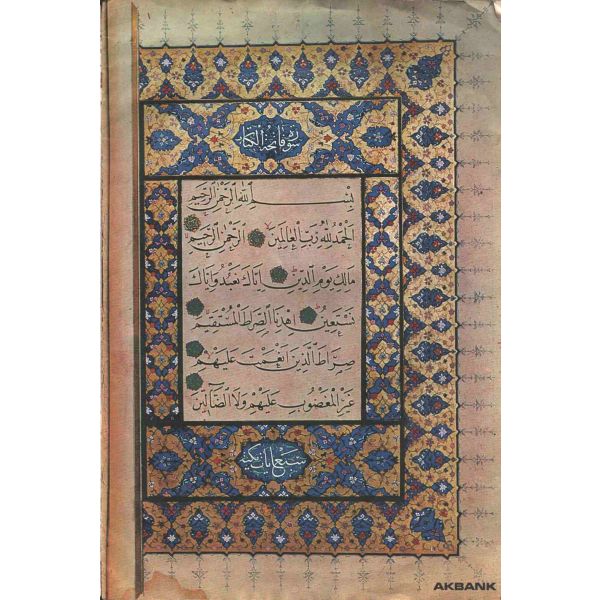 سورة فاتحة الكتاب
بِسْمِ اللهِ الرَّحْمٰنِ الرَّحِيمِ
اَلْحَمْدُ لِلّٰهِ رَبِّ الْعَالَمِينَ الرَّحْمٰنِ الرَّحِيمِ
مَالِكِ يَوْمِ الدِّينِ اِيَّاكَ نَعْبُدُ وَاِيَّاكَ
نَسْتَعِينُ اِهْدِنَا الصِّرَاطَ الْمُسْتَقِيمَ
صِرَاطَ الَّذِينَ اَنْعَمْتَ عَلَيْهِمْ
غَيْرِ الْمَغْضُوبِ عَلَيْهِمْ وَلَا الضَّٓالِّينَ
سبع ايات مكية
AKBANK